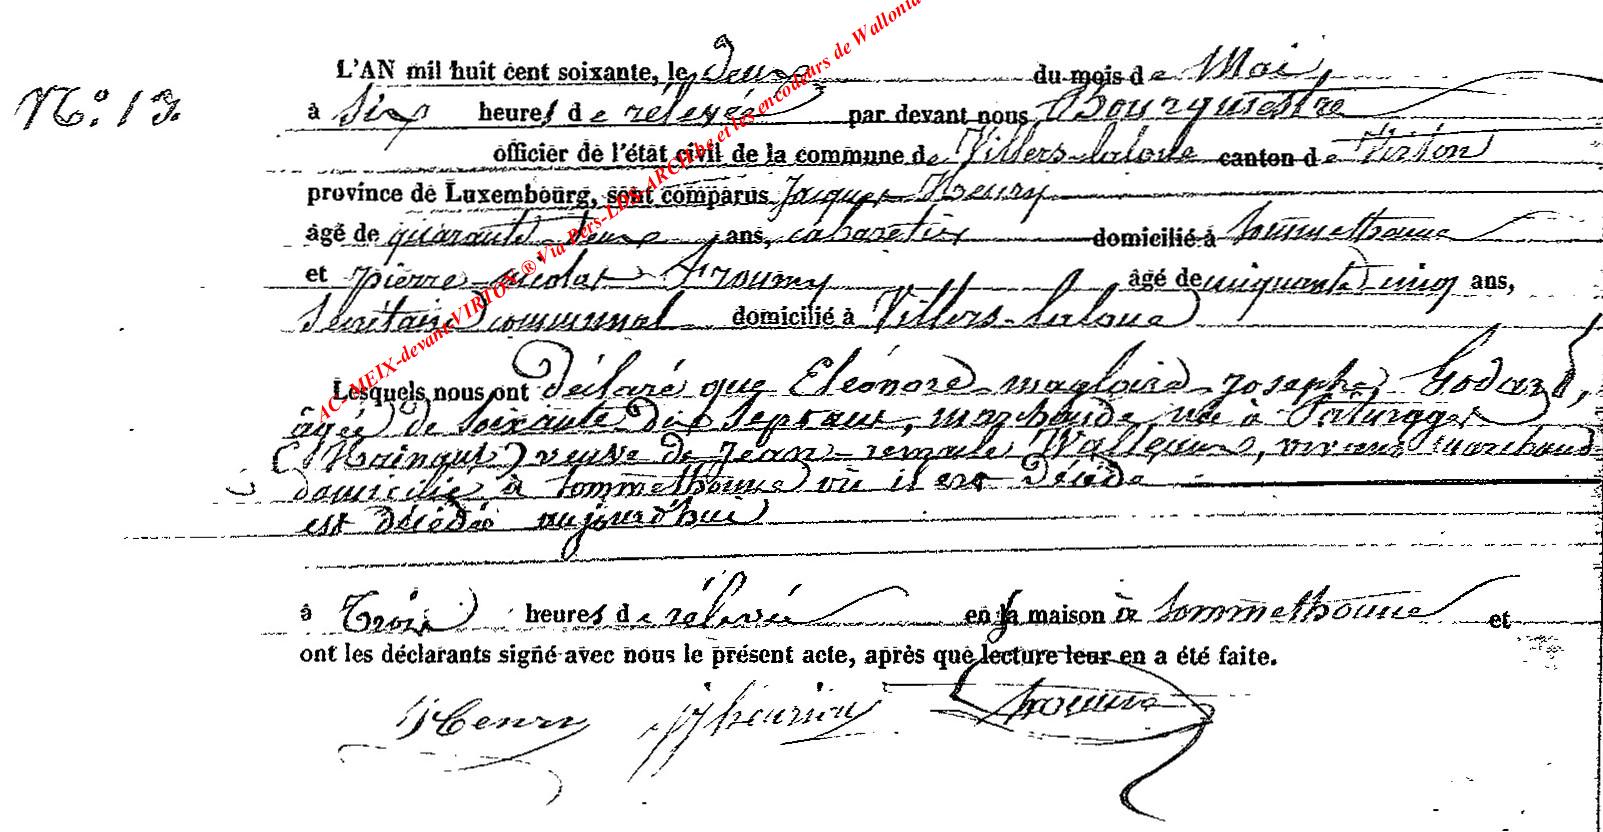 L'AN mil huit cent soixante, le deux du mois de Mai
N.° 13.
à six heures de relevée par devant nous Bourgmestre
officier de l'état civil de la commune de Villers-laloue canton de Virton
province de Luxembourg, sont comparus Jacques Henry
âgé de quarante deux ans, cabaretier domicilié à Sommethonne
et pierre nicolas age de cinquante cinq ans,
Secrétaire communal domicilié à Villers-laloue
Lesquels nous ont déclaré que Eléonore magloire Joseph Godard,
âgée de soixante dix sept ans, marchande née à Paturages
(Hainaut) veuve de Jean remacle, vivant marchand
domicilié à Sommethonne où il est décédé
est décédée aujourd'hui
à Trois heures de rélevée en sa maison à Sommethonne et
ont les déclarants signé avec nous le présent acte, après que lecture leur en a été faite.
Henry
AC- MEIX-devant-VIRTON ® Via Pers-LUX-ARCH.be et les encodeurs de Wallonia